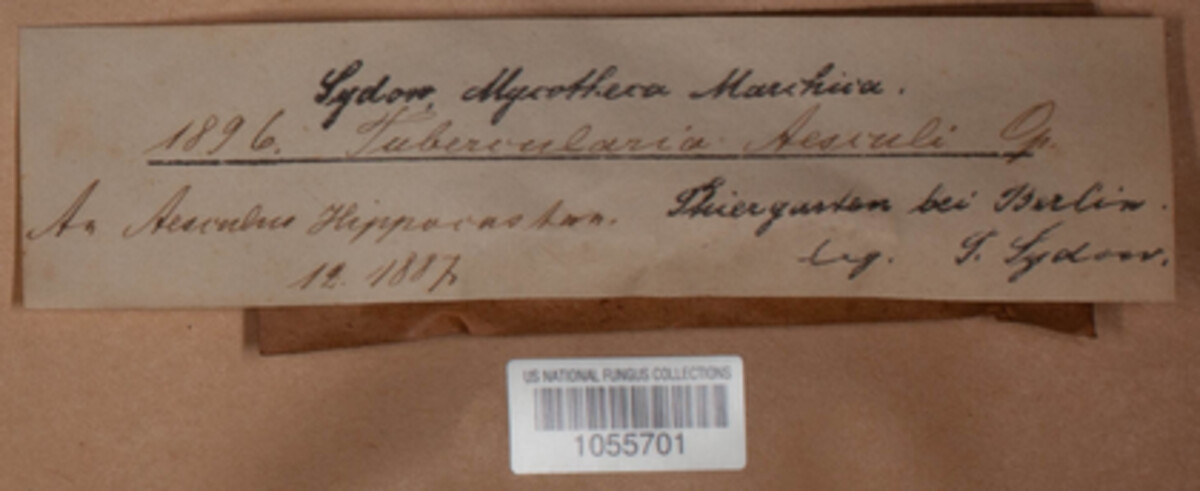 Sydow, Mycotheca Marchica.
1896. Tubercularia Aesculi Op.
An Aesculus Hippocastan. Thiergarten bei Berlin.
12. 1887. leg. P. Sydow.
US NATIONAL FUNGUS COLLECTIONS
1055701